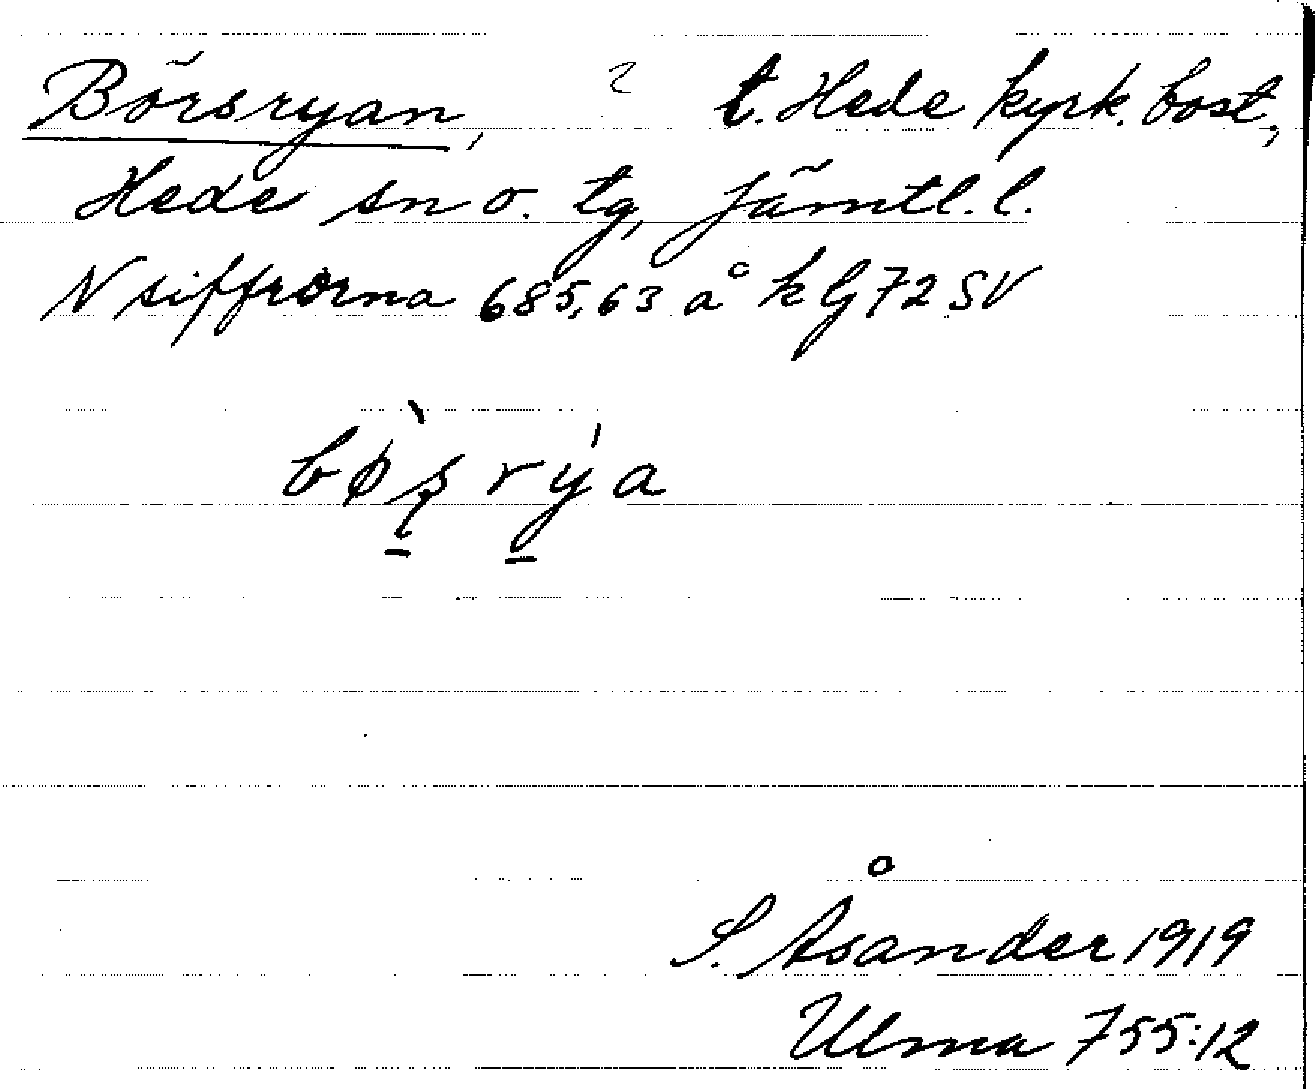 Börsryan, ? t. Hede kyrk. bost,
Hede sn o. tg, Jämtl. l.
N siffrorna 685,63 å k G 72 SV
bø̀ʂ rýa
S. Åsander 1919
Ulma 755:12